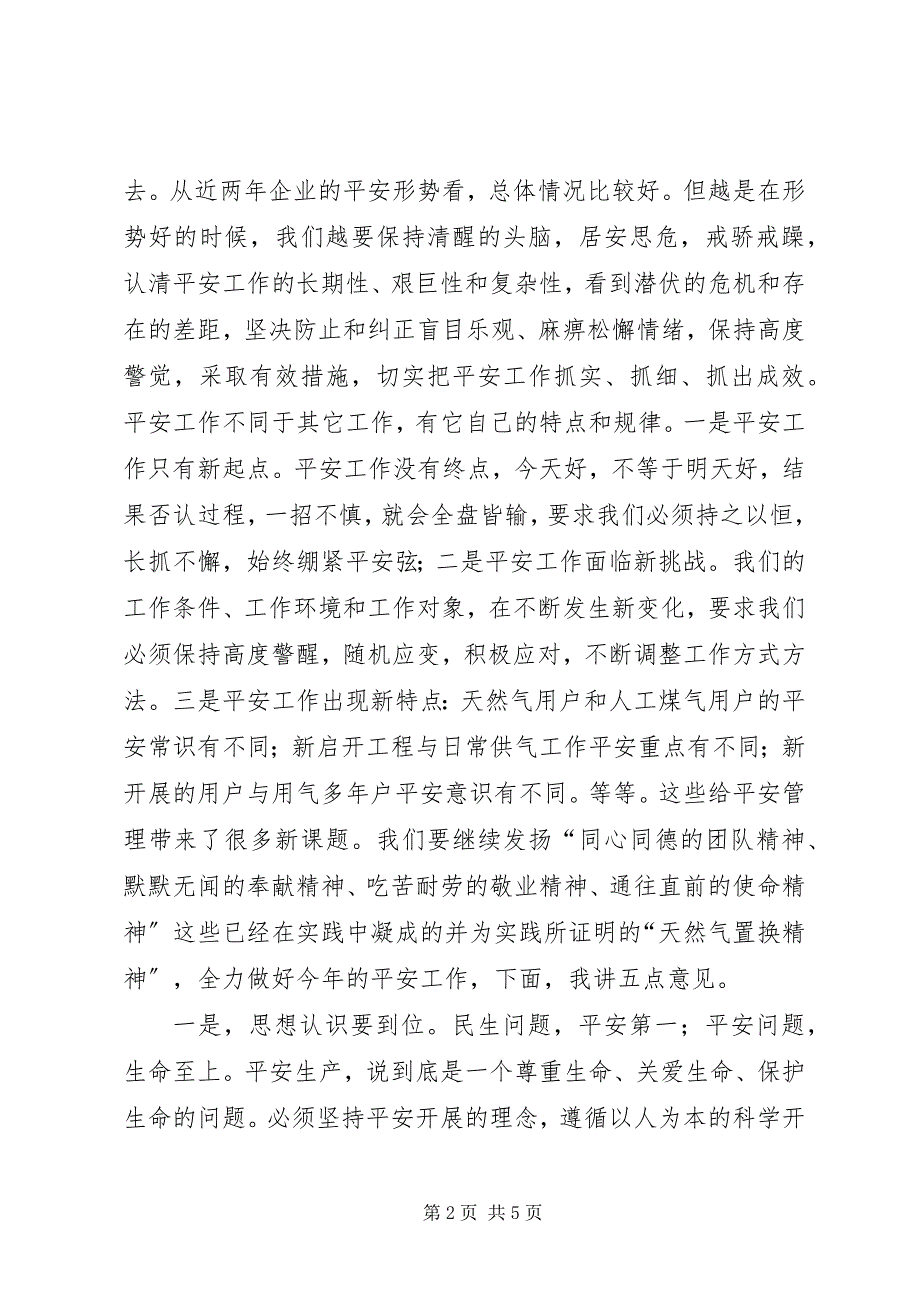 去。从近两年企业的平安形势看，总体情况比较好。但越是在形
势好的时候，我们越要保持清醒的头脑，居安思危，戒骄戒躁，
认清平安工作的长期性、艰巨性和复杂性，看到潜伏的危机和存
在的差距，坚决防止和纠正盲目乐观、麻痹松懈情绪，保持高度
警觉，采取有效措施，切实把平安工作抓实、抓细、抓出成效。
平安工作不同于其它工作，有它自己的特点和规律。一是平安工
作只有新起点。平安工作没有终点，今天好，不等于明天好，结
果否认过程，一招不慎，就会全盘皆输，要求我们必须持之以恒，
长抓不懈，始终绷紧平安弦；二是平安工作面临新挑战。我们的
工作条件、工作环境和工作对象，在不断发生新变化，要求我们
必须保持高度警醒，随机应变，积极应对，不断调整工作方式方
法。三是平安工作出现新特点：天然气用户和人工煤气用户的平
安常识有不同；新启开工程与日常供气工作平安重点有不同；新
开展的用户与用气多年户平安意识有不同。等等。这些给平安管
理带来了很多新课题。我们要继续发扬“同心同德的团队精神、
默默无闻的奉献精神、吃苦耐劳的敬业精神、通往直前的使命精
神〞这些已经在实践中凝成的并为实践所证明的“天然气置换精
神〞，全力做好今年的平安工作，下面，我讲五点意见。
一是，思想认识要到位。民生问题，平安第一；平安问题，
生命至上。平安生产，说到底是一个尊重生命、关爱生命、保护
生命的问题。必须坚持平安开展的理念，遵循以人为本的科学开
第 2 页 共 5 页